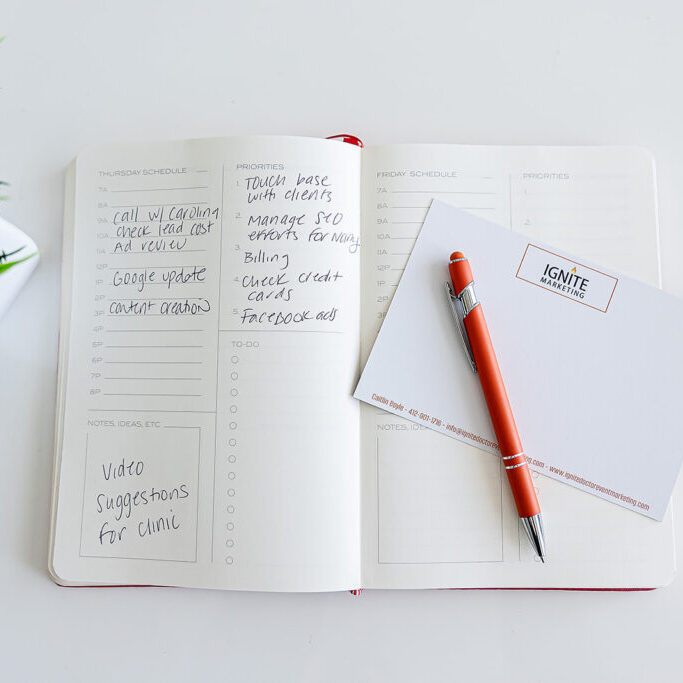 THURSDAY SCHEDULE
7A
8A
9A call w/ Carolina
check lead cost
10A
Ad review
11A
12P
1P Google update
2P
3P content creation
4P
5P
6P
7P
8P
NOTES, IDEAS, ETC
Video
suggestions
for clinic
PRIORITIES
1. Touch base
with clients
2. Manage SEO
efforts for
3. Billing
4. Check credit
cards
5. Facebook ads
TO-DO
FRIDAY SCHEDULE
7A
8A
9A
10A
11A
12P
1P
2P
3P
PRIORITIES
1.
2.
NOTES, IDE
IGNITE
MARKETING
Caitlin Boyle - 412-901-1716 - info@ignitedoctor ing.com - www.ignitedoctoreventmarketing.com